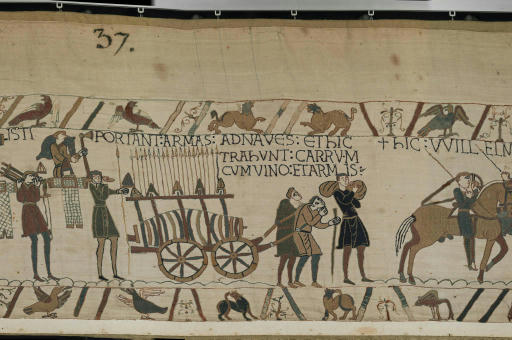 37.
ISTI PORTANT: ARMAS: AD NAVES: ET hIC
TRAhUNT: CARRVM
CVM VINO: ET ARMIS:
† hIC: VVILLELM